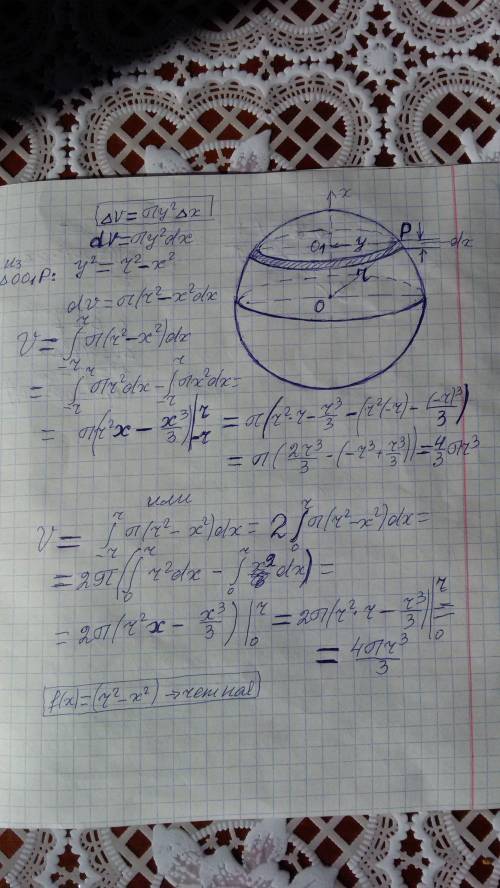 ΔV = πy²Δx
dV = πy²dx
из ΔOO₁P: y² = r² − x²
dv = π(r² − x²dx
V = ∫₋ᵣʳ π(r² − x²)dx
= ∫₋ᵣʳ πr²dx − ∫₋ᵣʳ πx²dx =
= π(r²x − x³/3)|₋ᵣʳ = π(r²·r − r³/3 − (r²(−r) − (−r)³/3)
= π(2r³/3 − (−r³ + r³/3)) = 4/3 πr³
или
V = ∫₋ᵣʳ π(r² − x²)dx = 2∫₀ʳ π(r² − x²)dx =
= 2π(∫₀ʳ r²dx − ∫₀ʳ dx) =
= 2π(r²x − x³/3)|₀ʳ = 2π(r²·r − r³/3)|₀ʳ =
= 4πr³/3
f(x) = (r² − x²) → четная
x
O₁
y
P
dx
r
O